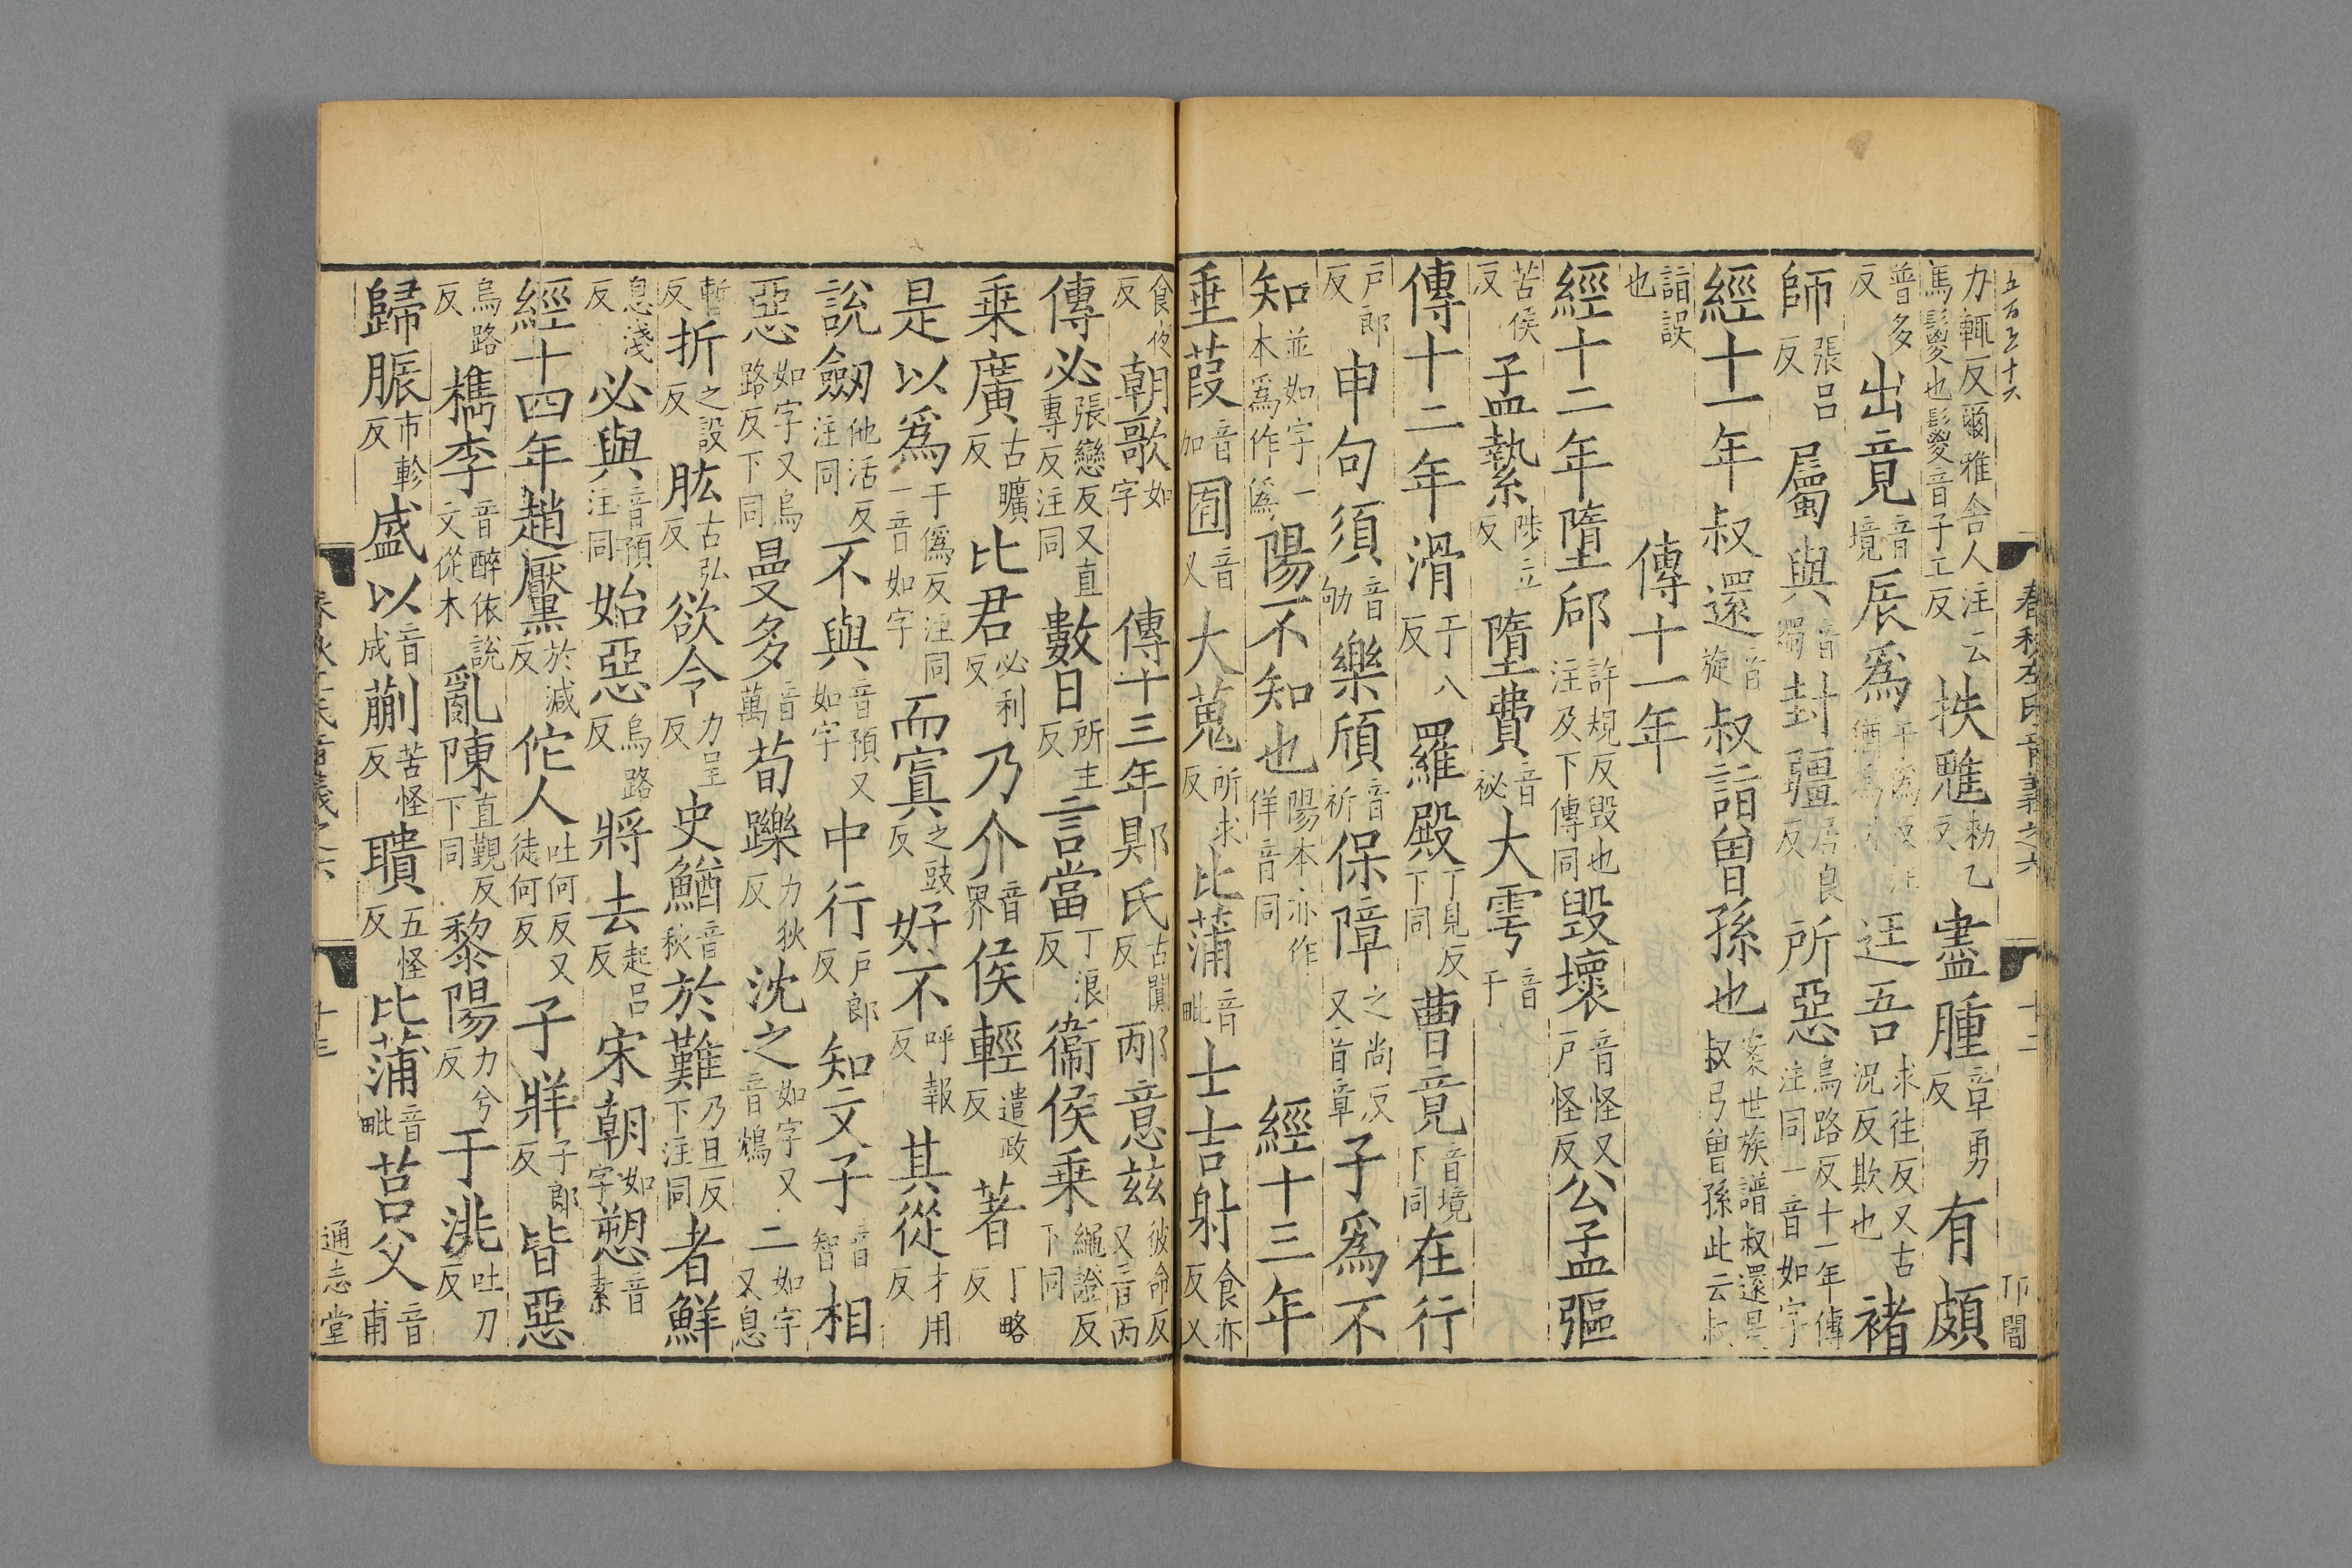 五百五十六
春秋左氏音義之六
十二
力輒反爾雅舍人注云馬鬉也鬉音子工反抶魋敕乙反盡腫章勇反有頗
普多反出竟音境辰爲迋吾求往反又古況反欺也褚
師張呂反屬與音獨封疆居良反所惡烏路反十一年傳注同一音如字
經十一年叔還音旋叔詣曾孫也案世族譜叔還是叔弓曾孫此云叔
詣誤也傳十一年
經十二年墮郈許規反毀也注及下傳同毀壞音怪又戶怪反公孟彄
苦侯反孟縶陟立反墮費音祕大雩音于
傳十二年滑于八反羅殿丁見反下同曹竟音境下同在行
戶郎反申句須音劬樂頎音祈保障之尚反又音章子爲不
知並如字一本爲作僞陽不知也陽本亦作佯音同經十三年
垂葭音加囿音又大蒐所求反比蒲音毗士吉射食亦反又
食夜反朝歌如字傳十三年郹氏古闃反邴意茲彼命反又音丙
傳必張戀反又直專反注同數日所主反言當丁浪反衞侯乗繩證反下同
乗廣古曠反比君必利反乃介音界侯輕遣政反著丁略反
是以爲于僞反注同一音如字而寘之豉反好不呼報反其從才用反
說劒他活反注同不與音預又如字中行戶郎反知文子音智相
惡如字又烏路反下同曼多音萬荀躒力狄反沈之如字又音鴆二如字又息
暫反折之設反肱古弘反欲令力呈反史鰌音秋於難乃旦反下注同者鮮
息淺反必與音預注同始惡烏路反將去起呂反宋朝如字愬音素
經十四年趙黶於減反佗人吐何反又徒何反子牂子郎反皆惡
烏路反檇李音醉依說文從木亂陳直覲反下同黎陽力兮反于洮吐刀反
歸脤市軫反盛以音成蒯苦怪反聵五怪反比蒲音毗莒父音甫
十三
通志堂